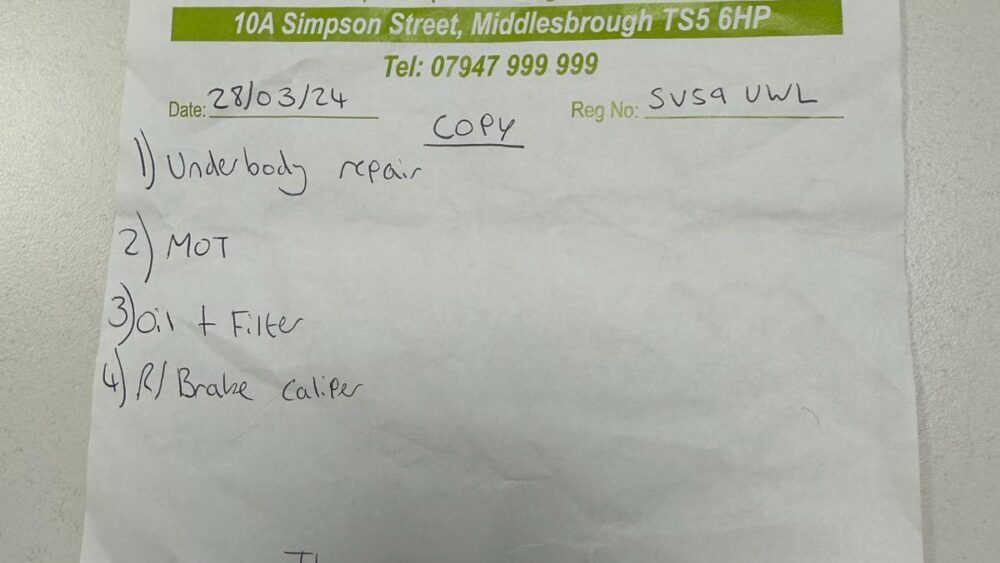 10A Simpson Street, Middlesbrough TS5 6HP
Tel: 07947 999 999
Date: 28/03/24 Reg No: SV59 UWL
COPY
1) Underbody repair
2) MOT
3) Oil + Filter
4) R/Brake caliper